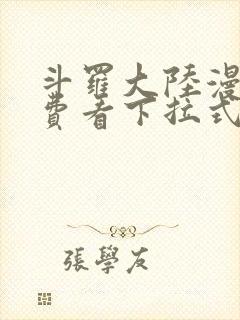 斗羅大陸漫
費看下拉式
張學友